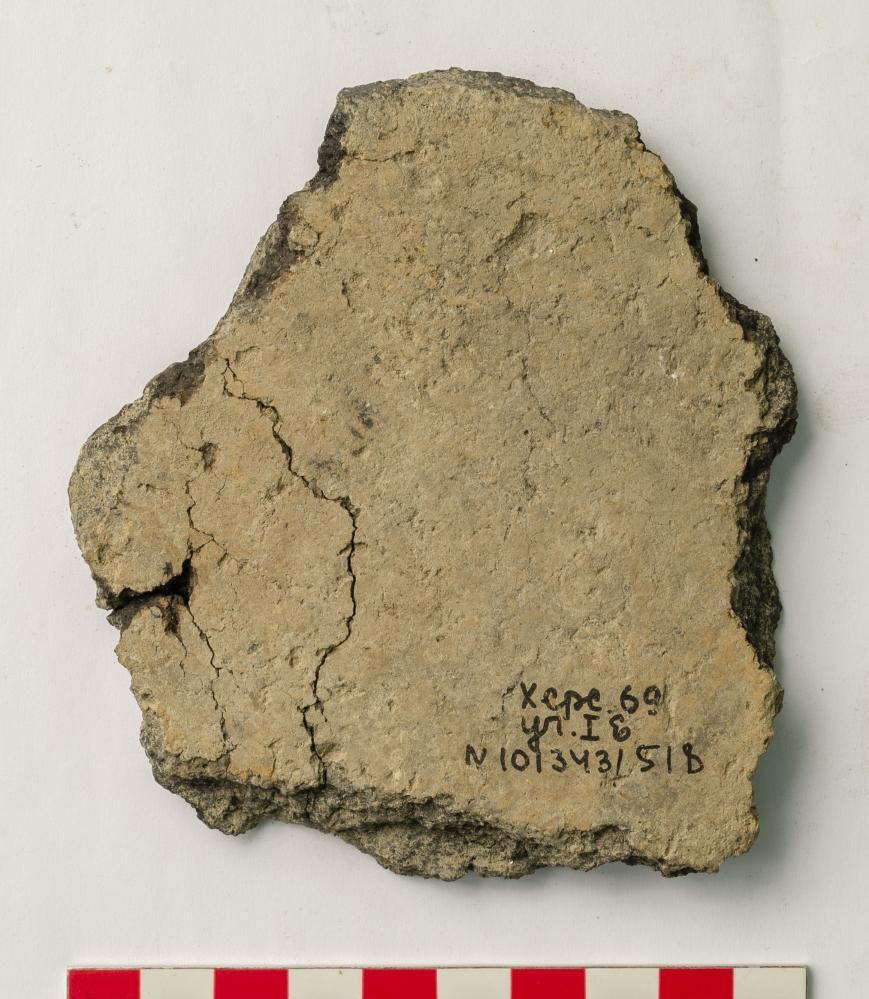 Херс. 69
ул. I Б
N 1013431518